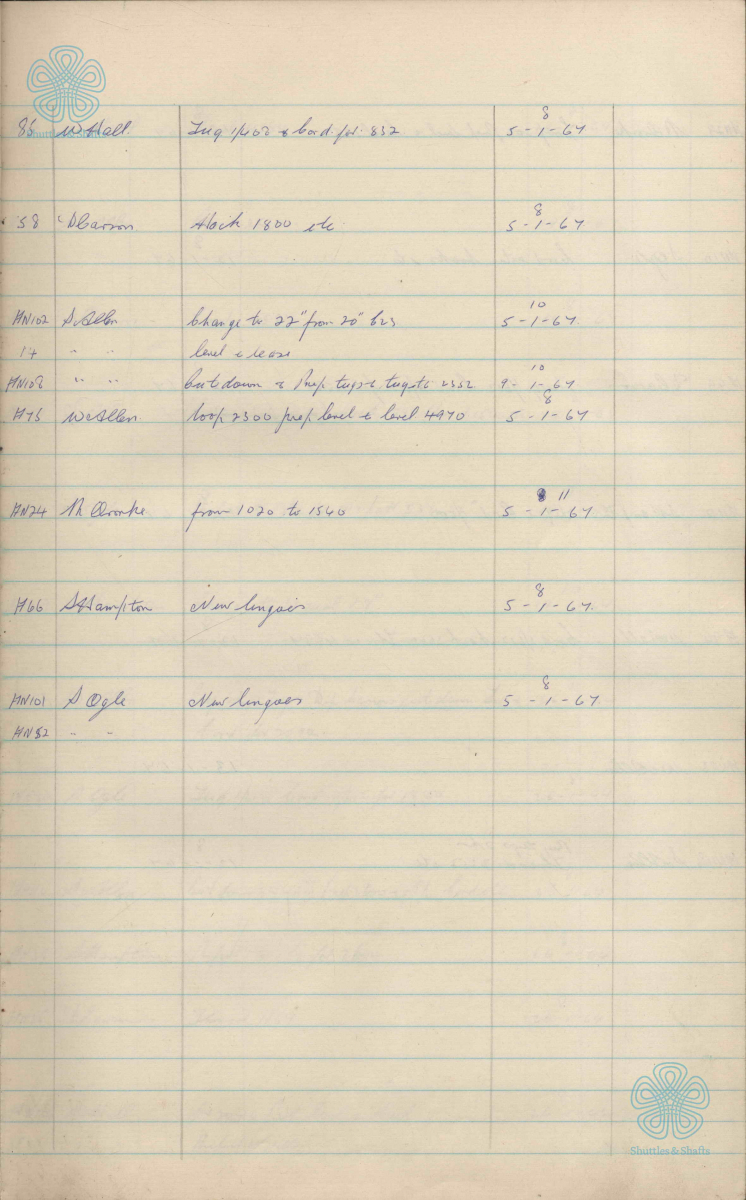 8
86 W Hall. Tug 1/400 & bord. for 832 5-1-67
8
58 D Carson Hack 1800 etc 5-1-67
10
HN102 S. Allen Change to 22" from 20" 5-1-67.
14 " " level & lease
10
HN108 " " cut down & Prep tugs & tugs to 2352 9-1-67
8
H75 W Allen. loop 2300 prep level & level 4970 5-1-67
11
HN24 from 1020 to 1540 5-1-67
8
H66 S Hampton New lingoes 5-1-67.
8
HN101 S Ogle New lingoes 5-1-67.
HN52 " "
Shuttles & Shafts